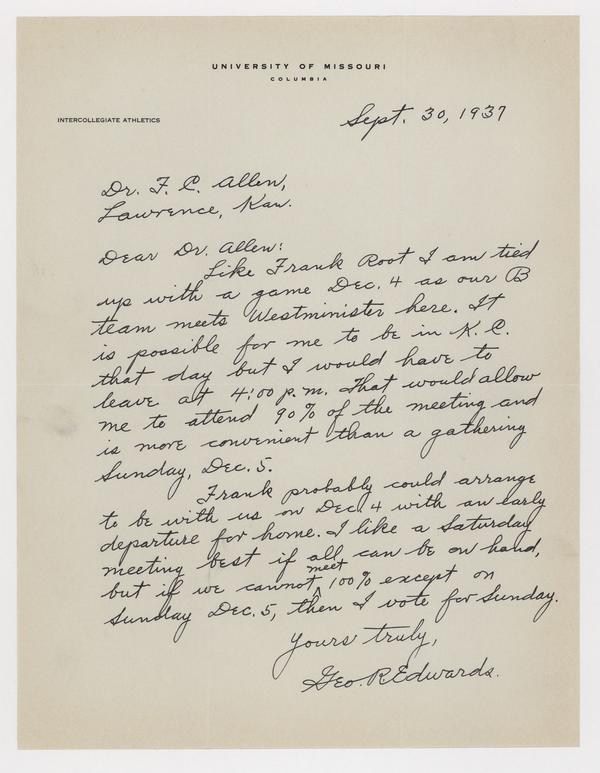 UNIVERSITY OF MISSOURI
COLUMBIA
INTERCOLLEGIATE ATHLETICS
Sept. 30, 1937
Dr. F. C. Allen,
Lawrence, Kan.
Dear Dr. Allen:
Like Frank Root I am tied
up with a game Dec. 4 as our B
team meets Westminister here. It
is possible for me to be in K. C.
that day but I would have to
leave at 4:00 p.m. That would allow
me to attend 90% of the meeting and
is more convenient than a gathering
Sunday, Dec. 5.
Frank probably could arrange
to be with us on Dec. 4 with an early
departure for home. I like a Saturday
meeting best if all can be on hand,
but if we cannot meet 100% except on
Sunday Dec. 5, then I vote for Sunday.
Yours truly,
Geo. R Edwards.